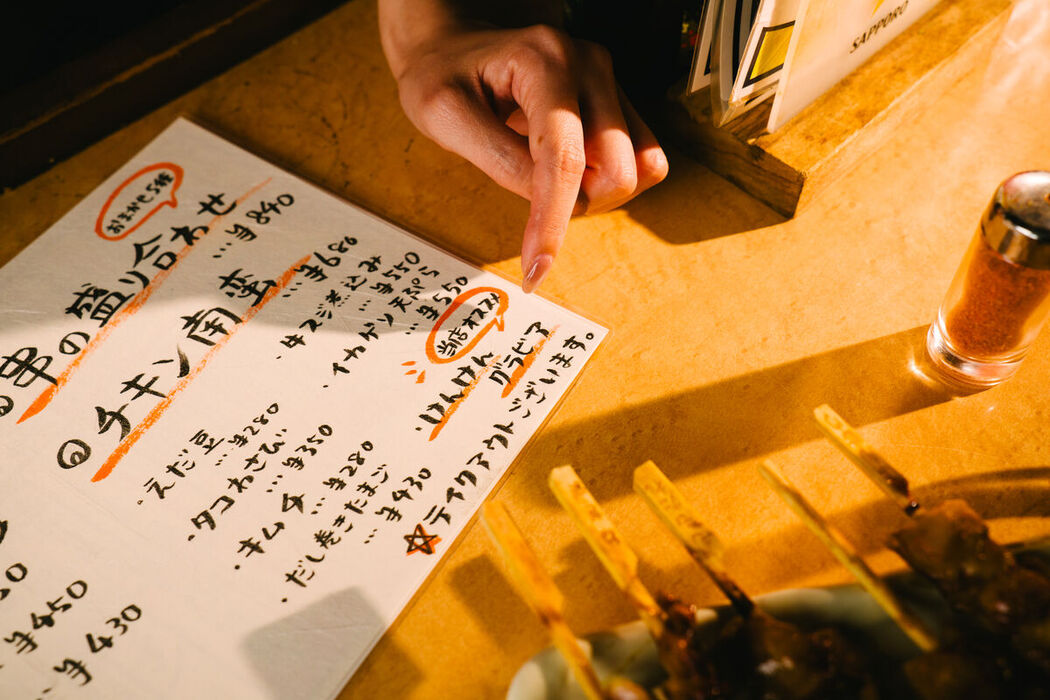 SAPPORO
おまかせ5種
◎串の盛り合わせ
…¥840
◎チキン南蛮…¥680
・牛スジ煮込み
…¥550
・イカゲソ天ぷら
…¥550
当店オススメ
グラビア
・えだ豆
…¥280
・タコわさび
…¥350
・キムチ…¥280
・だし巻きたまご
…¥430
☆テイクアウトございます。
¥450
¥430